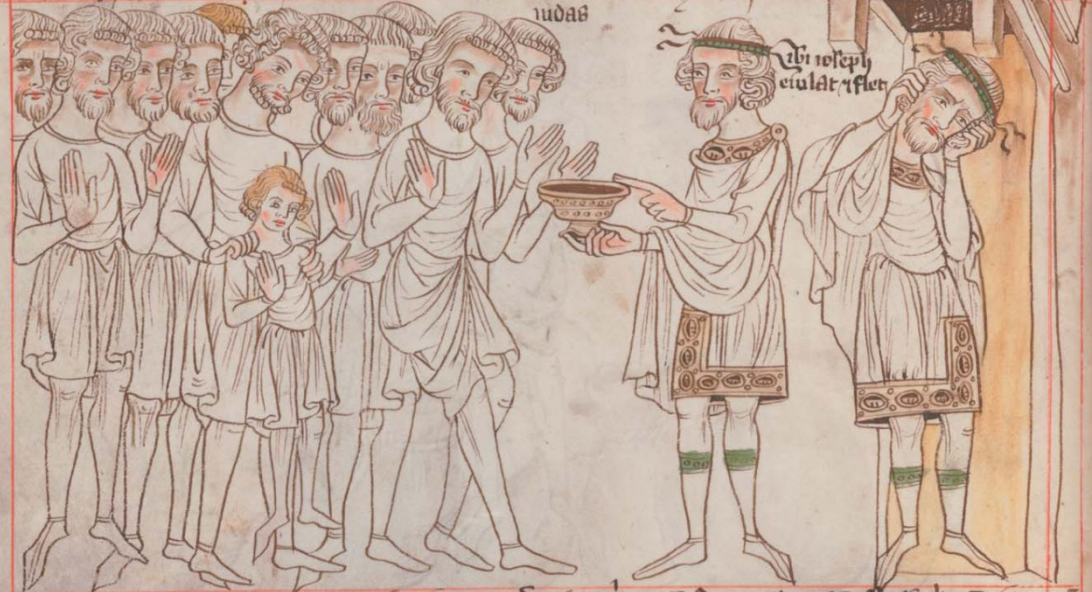 iudas
Ubi ioseph
eiulat ⁊ flet